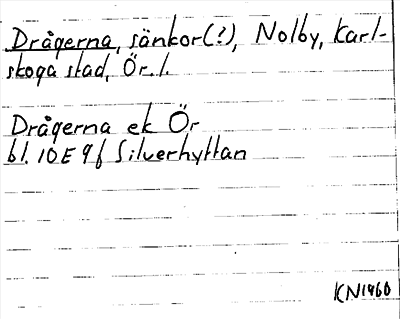 Drågerna, sänkor(?), Nolby, Karl-
skoga stad, Ör. l.
Drågerna ek Ör
bl. 10E 9f Silverhyttan
KN1960